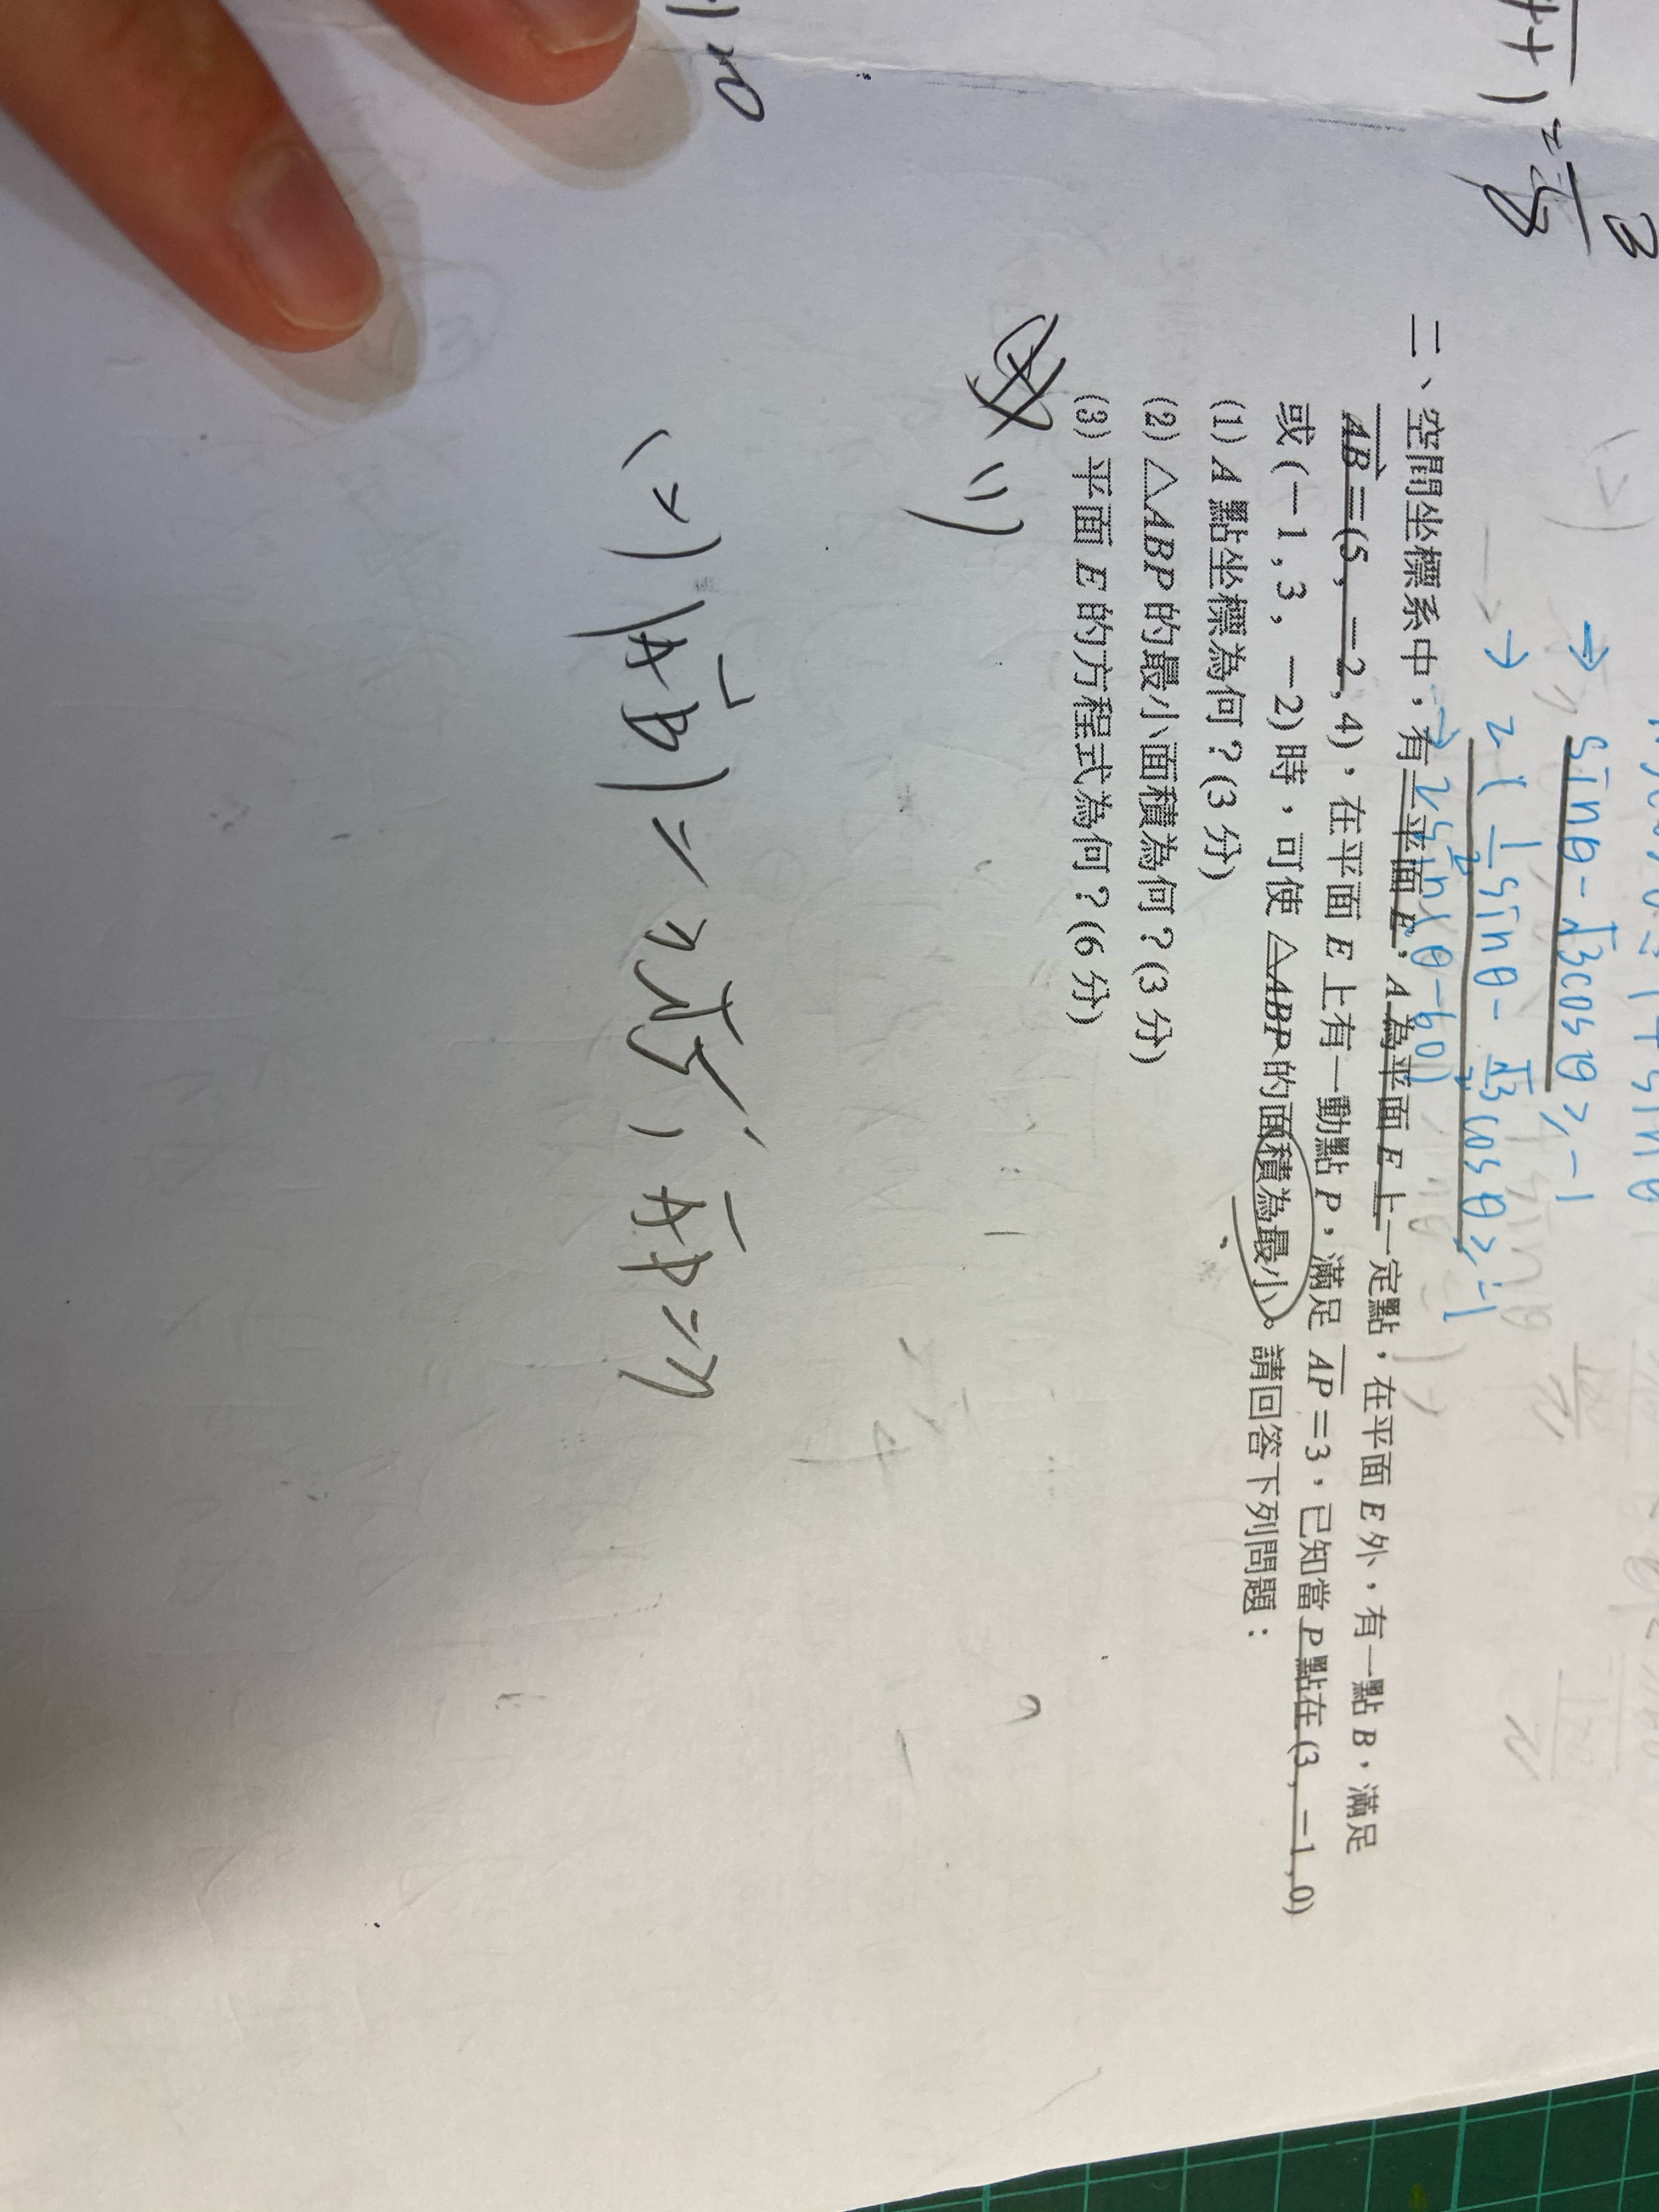 sinθ-√3cosθ≥-1
→ 2(1/2 sinθ-√3/2 cosθ≥-1
→ 2sin(θ-60)
二、空間坐標系中,有一平面 E,A 為平面 E 上一定點,在平面 E 外,有一點 B,滿足
AB=(5,-2,4),在平面 E 上有一動點 P,滿足 AP=3,已知當 P 點在 (3,-1,0)
或 (-1,3,-2) 時,可使 △ABP 的面積為最小。請回答下列問題:
(1) A 點坐標為何?(3 分)
(2) △ABP 的最小面積為何?(3 分)
(3) 平面 E 的方程式為何?(6 分)
(1)
(2) |AB|=